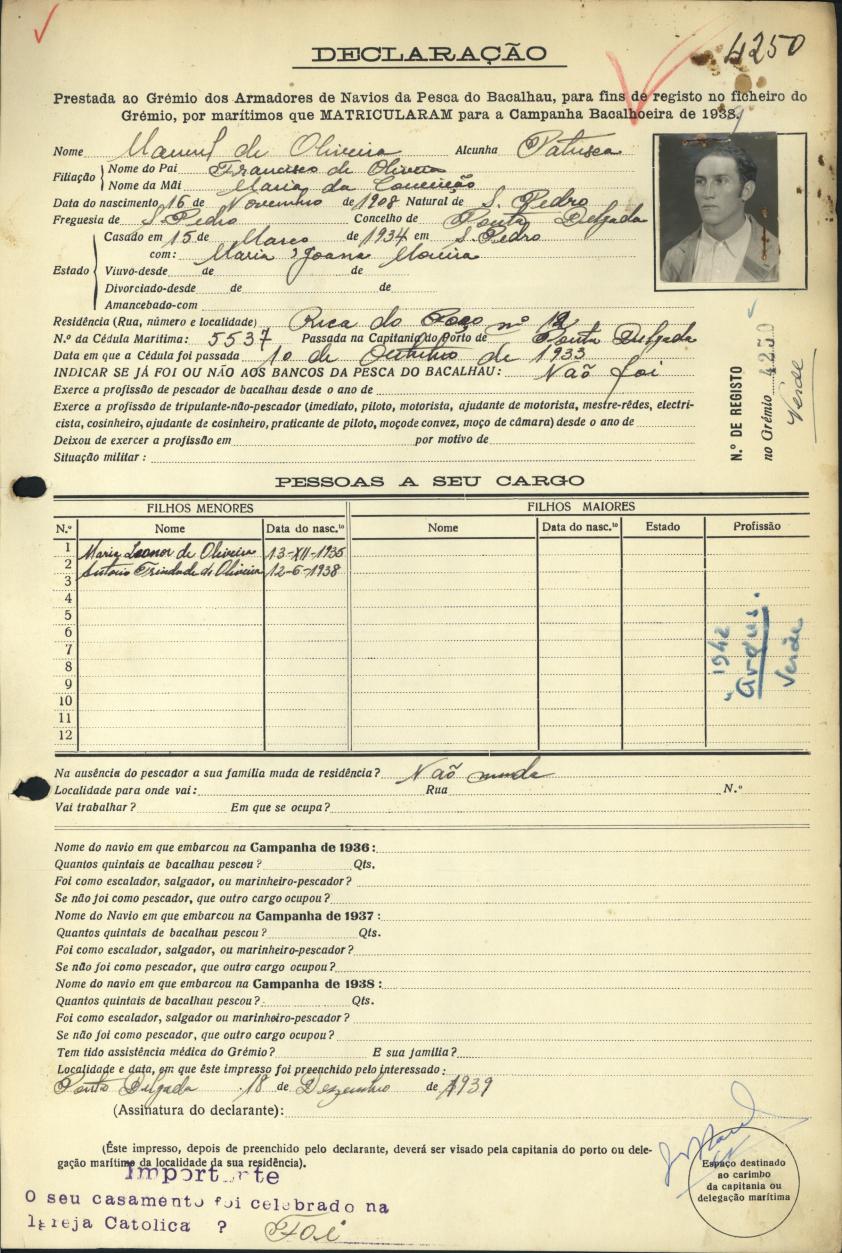 4250
DECLARAÇÃO
Prestada ao Grémio dos Armadores de Navios da Pesca do Bacalhau, para fins de registo no ficheiro do
Grémio, por marítimos que MATRICULARAM para a Campanha Bacalhoeira de 1938.
Nome Manuel de Oliveira Alcunha Patusca
Filiação Nome do Pai Francisco de Oliveira
Nome da Mãi Maria da Conceição
Data do nascimento 16 de Novembro de 1908 Natural de S. Pedro
Freguesia de S. Pedro Concelho de Ponta Delgada
Casado em 15 de Março de 1934 em S. Pedro
com: Maria Joana Moreira
Estado Viuvo-desde de de
Divorciado-desde de de
Amancebado-com
Residência (Rua, número e localidade) Rua do Poço nº 12
N.º da Cédula Maritima: 5537 Passada na Capitania do Porto de Ponta Delgada
Data em que a Cédula foi passada 10 de Outubro de 1933
INDICAR SE JÁ FOI OU NÃO AOS BANCOS DA PESCA DO BACALHAU: Não foi
Exerce a profissão de pescador de bacalhau desde o ano de
Exerce a profissão de tripulante-não-pescador (imediato, piloto, motorista, ajudante de motorista, mestre-rêdes, electri-
cista, cosinheiro, ajudante de cosinheiro, praticante de piloto, moço de convez, moço de câmara) desde o ano de
Deixou de exercer a profissão em por motivo de
Situação militar:
N.º DE REGISTO
no Grémio 4250
Verde
PESSOAS A SEU CARGO
FILHOS MENORES FILHOS MAIORES
N.º Nome Data do nasc.to Nome Data do nasc.to Estado Profissão
1 Maria Leonor de Oliveira 13-XII-1935
2 Antonio Trindade de Oliveira 12-6-1938
3
4
5
6
7
8
9
10
11
12
1942
"Argus".
Verde
Na ausência do pescador a sua família muda de residência? Não muda
Localidade para onde vai: Rua N.º
Vai trabalhar? Em que se ocupa?
Nome do navio em que embarcou na Campanha de 1936:
Quantos quintais de bacalhau pescou? Qts.
Foi como escalador, salgador, ou marinheiro-pescador?
Se não foi como pescador, que outro cargo ocupou?
Nome do Navio em que embarcou na Campanha de 1937:
Quantos quintais de bacalhau pescou? Qts.
Foi como escalador, salgador, ou marinheiro-pescador?
Se não foi como pescador, que outro cargo ocupou?
Nome do navio em que embarcou na Campanha de 1938:
Quantos quintais de bacalhau pescou? Qts.
Foi como escalador, salgador ou marinheiro-pescador?
Se não foi como pescador, que outro cargo ocupou?
Tem tido assistência médica do Grémio? E sua família?
Localidade e data, em que êste impresso foi preenchido pelo interessado:
Ponta Delgada 18 de Dezembro de 1939
(Assinatura do declarante):
(Êste impresso, depois de preenchido pelo declarante, deverá ser visado pela capitania do porto ou dele-
gação marítima da localidade da sua residência).
Espaço destinado
ao carimbo
da capitania ou
delegação marítima
Importante
O seu casamento foi celebrado na
Igreja Catolica ? Foi